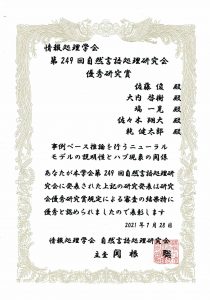 情報処理学会
第249回自然言語処理研究会
優秀研究賞
佐藤 俊 殿
大内 啓樹 殿
塙 一晃 殿
佐々木 翔大 殿
乾 健太郎 殿
事例ベース推論を行うニューラル
モデルの説明性とハブ現象の関係
あなたが本学会第249回自然言語処理研
究会に発表された上記の研究発表は研究
会優秀研究賞規定による審査の結果特に
優秀と認められましたので表彰します
2021年7月28日
情報処理学会 自然言語処理研究会
主査 関根 聡